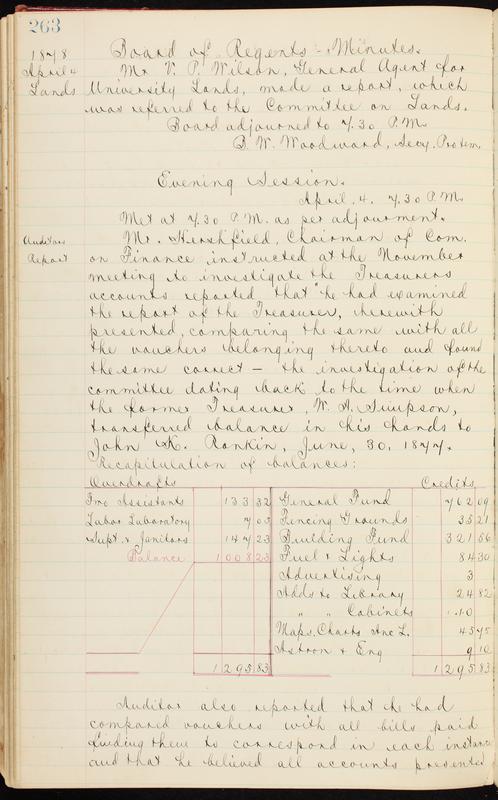 263
Board of Regents - Minutes.
1878
April 4
Lands
Mr. V. P. Wilson, General Agent for
University Lands, made a report, which
was referred to the Committee on Lands.
Board adjourned to 7.30 P.M.
B. W. Woodward, Secy. Protem.
Evening Session.
April. 4. 7.30 P.M.
Met at 7.30 P.M. as per adjourment.
Auditors
Report
Mr. Hershfield, Chairman of Com.
on Finance, instructed at the November
meeting to investigate the Treasurers
accounts reported that "he had examined
the report of the Treasurer, herewith
presented, comparing the same with all
the vouchers belonging thereto and found
the same correct — the investigation of the
committee dating back to the time when
the former Treasurer, W. A. Simpson,
transferred balance in his hands to
John K. Rankin, June, 30, 1877.
Recapitulation of balances:
Overdrafts Credits
Two Assistants 133 32 General Fund 762 09
Labor Laboratory 7 05 Fencing Grounds 35 21
Supt. & Janitors 147 23 Building Fund 321 56
Balance 1008 23 Fuel & Lights 84 30
Advertising 3
Adds to Library 24 82
" " Cabinets 10
Maps, Charts Anc L. 45 75
Astron & Eng 9 10
1295 83 1295 83
Auditor also reported that he had
compared vouchers with all bills paid
finding them to correspond in each instance
and that he believed all accounts presented